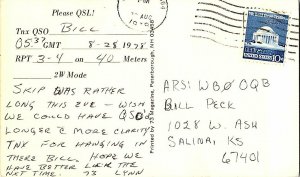 Please QSL!
Tnx QSO BILL
05:37 GMT 8-28-1978
RPT 3-4 on 40 Meters
2W Mode
SKIP WAS RATHER
LONG THIS EVE - WISH
WE COULD HAVE QSO
LONGER & MORE CLARITY
TNX FOR HANGING IN
THERE BILL. HOPE WE
HAVE BETTER LUCK THE
NXT TIME! 73 LYNN
Printed by 73 Magazine, Peterborough, NH 03458
PM
AUG
1978
10c
ARS: WB0 OQB
BILL PECK
1028 W. ASH
SALINA, KS
67401